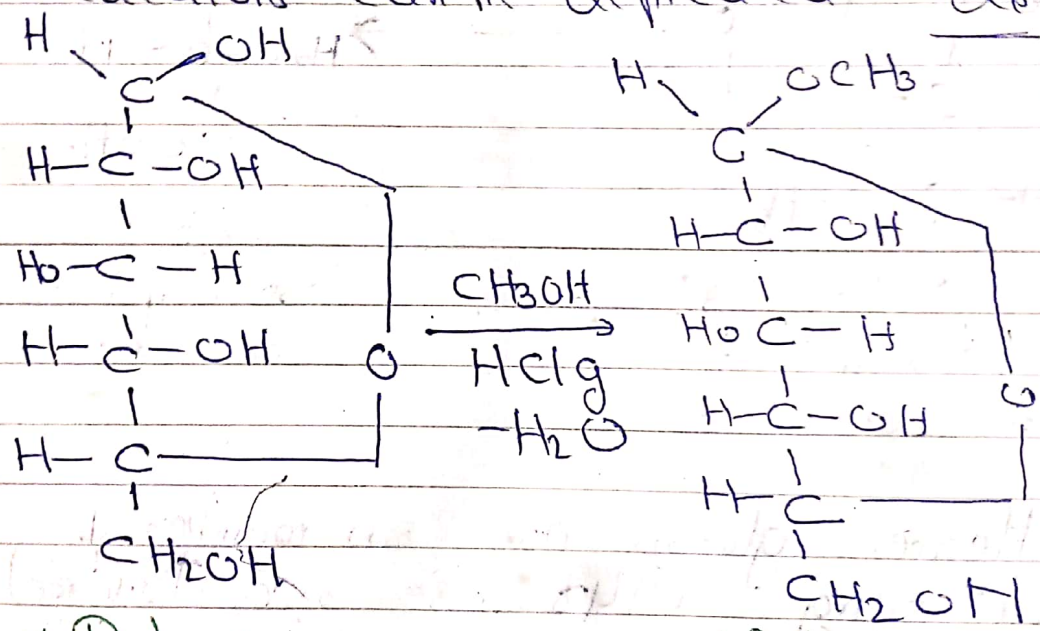 H OH
C
H-C-OH
HO-C-H
H-C-OH O
H-C
CH2OH
CH3OH
HClg
-H2O
H OCH3
C
H-C-OH
HO C-H
H-C-OH O
H-C
CH2OH